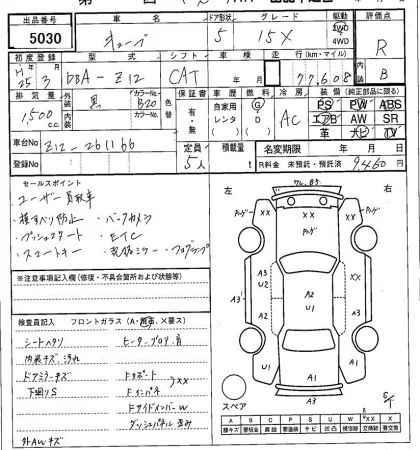 出品番号 車名 ドア形状 グレード 駆動 評価点
5030 キューブ 5 15X 2WD 4WD R
初度登録 型式 シフト 車検 走行(km・マイル) 内装
H25 3 DBA-Z12 CAT 年 月 77,608 B
排気量 外装 カラーNo. 色替 保証書 車歴 燃料 冷房 装備(純正部品に限る)
1,500 c.c. 黒 B20 有・無 自家用 レンタ G D AC PS PW ABS
エアB AW SR
革 ナビ TV
内装 カラーNo.
車台No Z12-261166 定員 5人 積載量 t 名変期限 年 月 日
R料金 未預託・預託済 9,460 円
セールスポイント
ユーザー買取車
横すべり防止 ・バックカメラ
・プッシュスタート ・ETC
・スマートキー ・フォグランプ
左 右
※注意事項記入欄(修復・不具合箇所および状態等)
検査員記入 フロントガラス(A・飛石・X要ス)
シートヘタリ ヒーターブロア音
内装キズ汚れ
ドアミラーキズ Fサポート
下廻りS Fインパネ XX
FサイドメンバーW
ダッシュパネル歪み
外AWキズ
XX XX
A3 U2
A3
A2 U1
XX
A3
U2
A1
A1
A3
スペア
S/T
A B C P S U W X XX
線キズ 要板金 腐食 要塗装 サビ 凹凸 補修跡 要交換 交換済